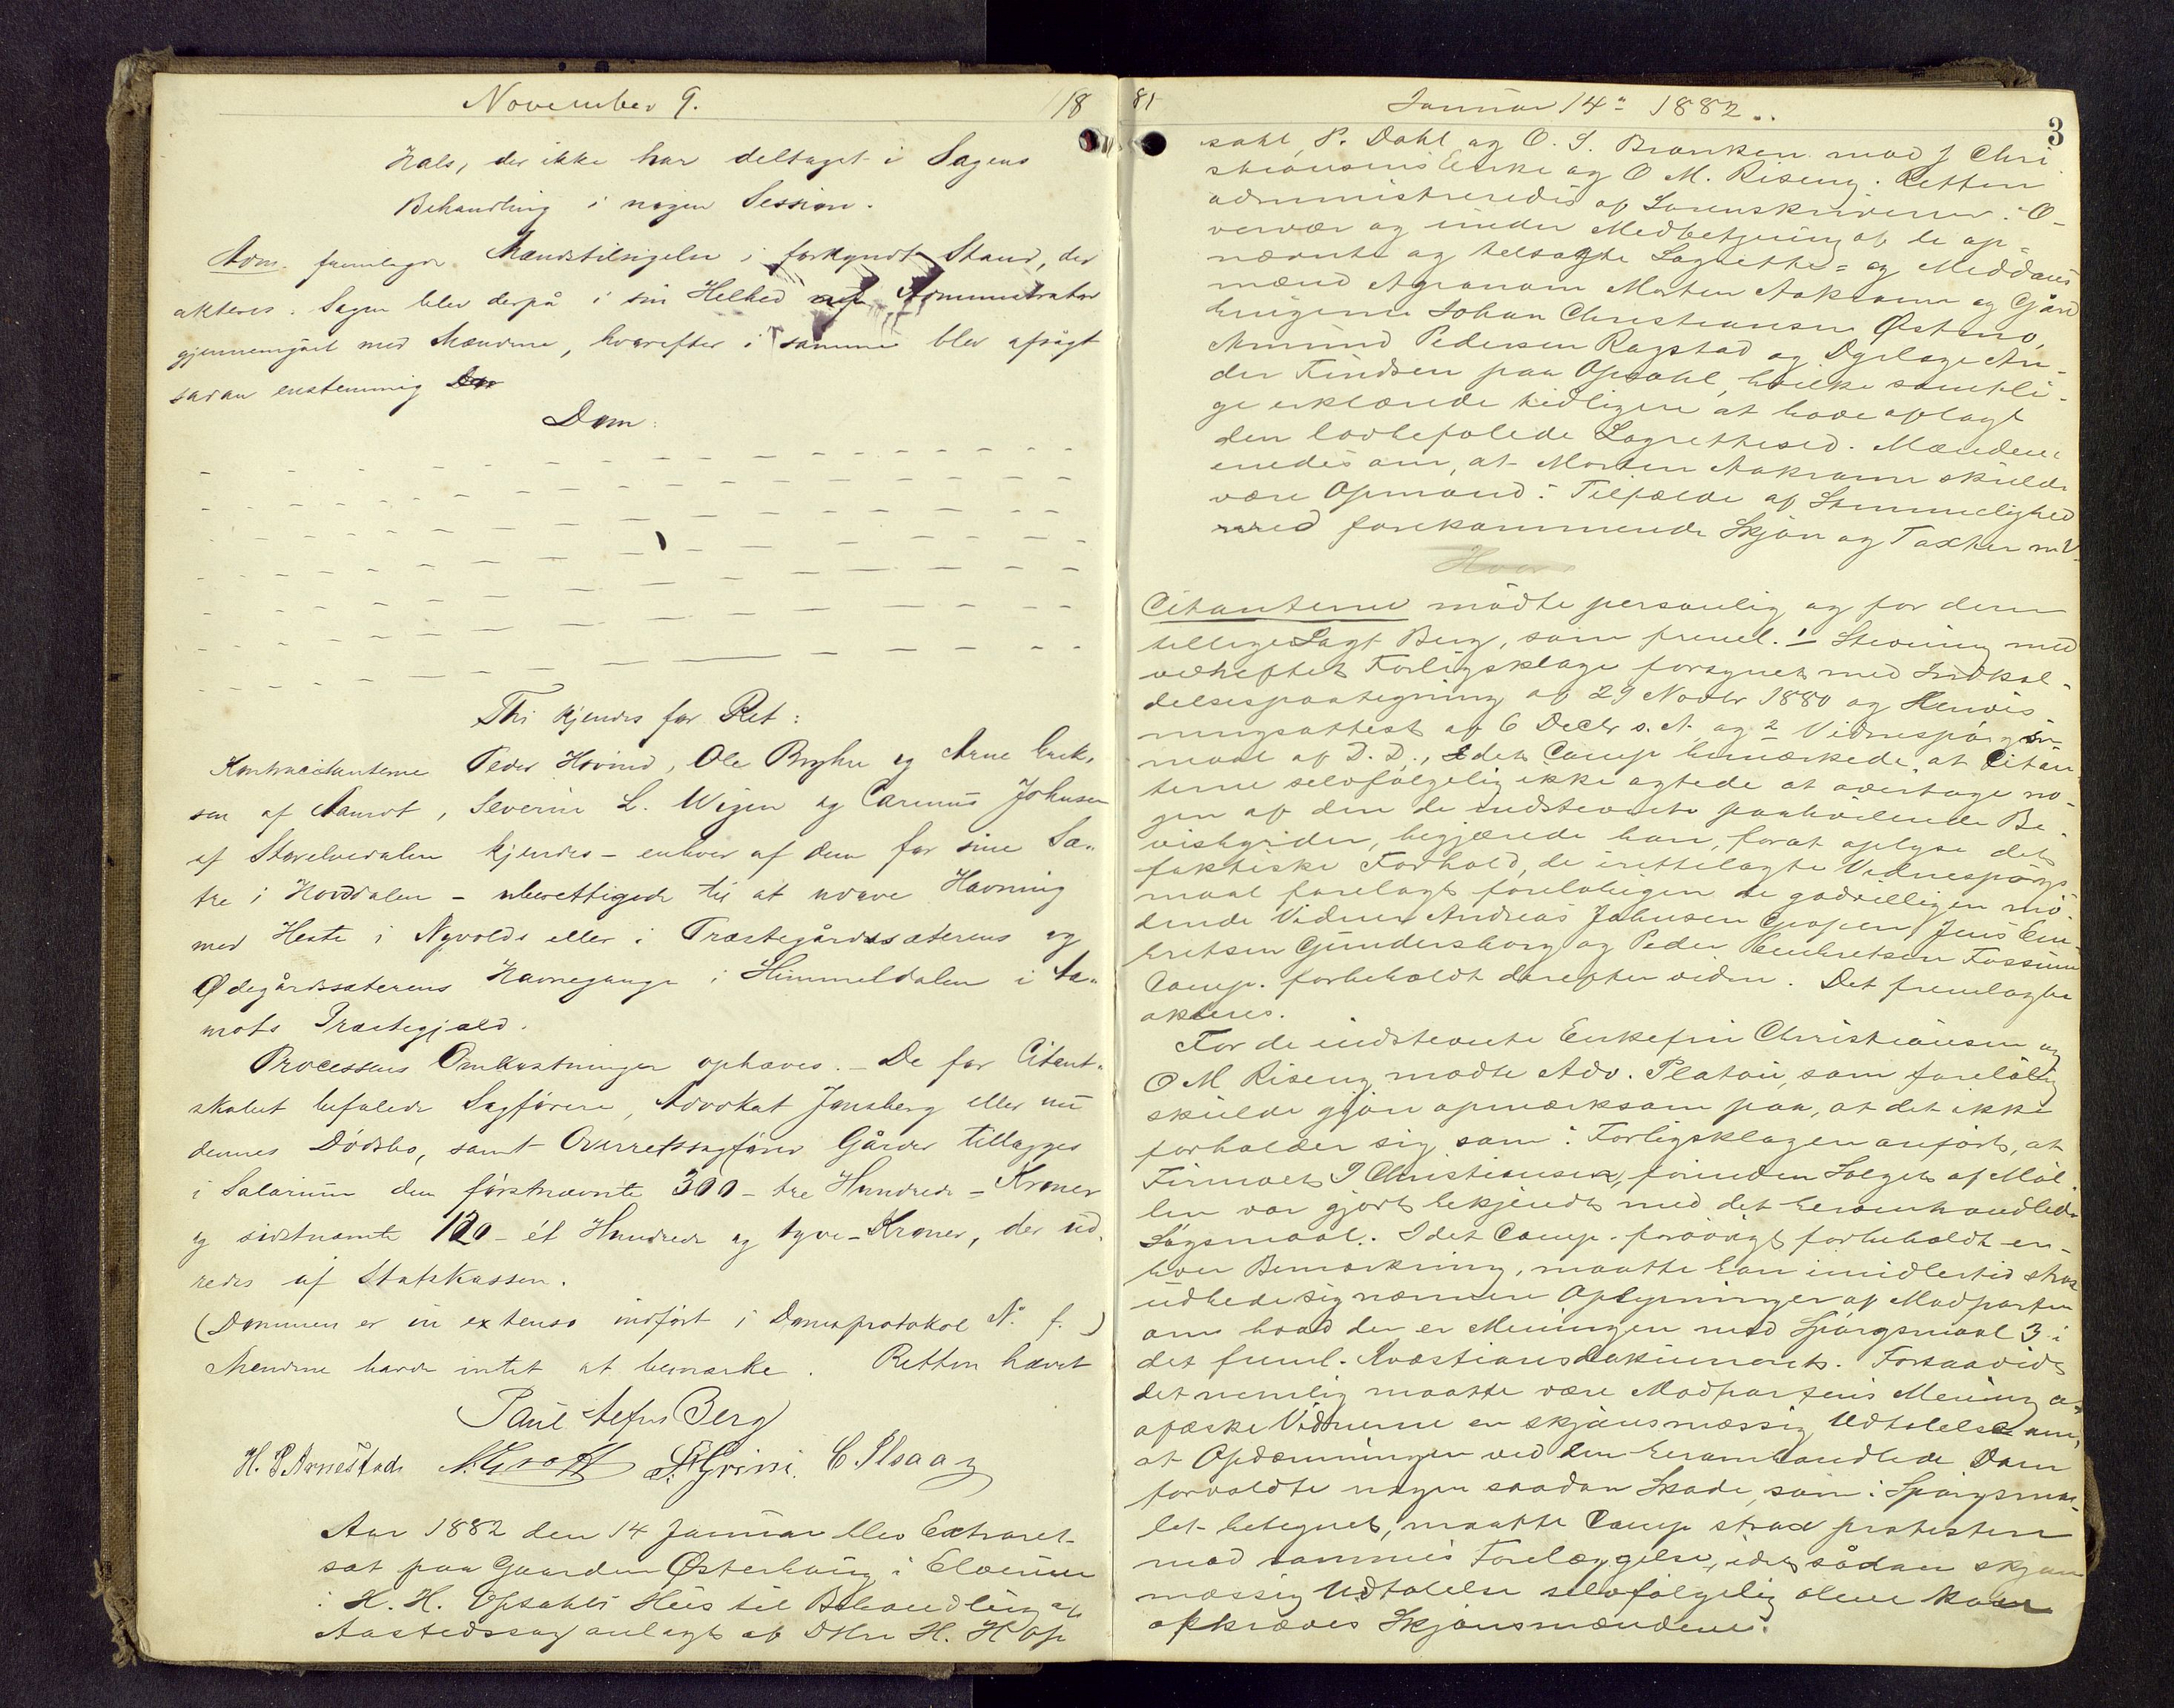 November 9. 18
Hals, der ikke har deltaget i Sagens
Behandling i nogen Session.
Adm. fremlagde Mændstilsigelse i forkyndt Stand, der
akteres. Sagen blev derpå i sin Helhed af Administrator
gjennemgået med Mændene, hvorefter i samme blev afsagt
sådan enstemmig
Dom:
Thi kjendes for Ret:
Kontracitanterne Peder Hovind, Ole Bryhn og Arne Erik-
sen af Aamot, Severin L. Wigen og Carenus Johnsen
af Storelvedalen kjendes - enhver af dem for sine Sæ-
tre i Hovdalen - uberettigede til at udøve Havning
med Heste i Nyvolds eller i Præstegårdssæterens og
Ødegårdssæterens Havnegange i Himmeldalen i Aa-
mots Præstegjæld.
Processens Omkostninger ophæves. - De for Citant-
skabet befalede Sagførere, Advokat Jensberg eller nu
dennes Dødsbo, samt Overretssagfører Gårder tillægges
i Salarium den førstnævnte 300 - tre Hundrede - Kroner
og sidstnævnte 120 - ét Hundrede og tyve - Kroner, der ud-
redes af Statskassen.
(Dommen er in extenso indført i Domsprotokol N° f. )
Mændene havde intet at bemærke. Retten hævet
Paul Berg
H. P. Arnestad N. Groth Grini. C. Ilsaas
Aar 1882 den 14 Januar blev Extraret
sat paa Gaarden Østerhaug i Elverum
i H. H. Opsahls Hus til Behandling af
Aastedssag anlagt af DHrr H. H. Op
81 Januar 14de 1882. 3
sahl, P. Dahl og O. S. Branken mod J Chri
stiansens Enke og O M. Riseng. Retten
administreredes af Sorenskriveren i O-
vervær og under Medbetjening af de op-
nævnte og tilsagte Lagrettes- og Meddoms
mænd Agronom Morten Aakrann og Gård
brugerne Johan Christiansen Østmo,
Amund Pedersen Ragstad og An-
der Findsen paa Opsahl, hvilke samtli-
ge erklærede tidligere at have aflagt
den lovbefalede Lagrettesed. Mændene
enedes om, at Morten Aakrann skulde
være Opmand i Tilfælde af Stemmelighed
ved forekommende Skjøn og Taxter m V
Hver
Citanterne mødte personlig og for dem
tillige Sagf Berg, som freml. 1 Stevning med
vedheftet Forligsklage forsynet med Indkal-
delsespaategning af 29 Novbr 1880 og Henvis
ningsattest af 6 Decbr s. A. og 2 Vidnespørgs-
maal af D. D., Idet Comp bemærkede, at Citan-
terne selvfølgelig ikke agtede at overtage no-
gen af den de indstevnte paahvilende Be-
visbyrder, begjærede han, forat oplyse det
faktiske Forhold, de irettelagte Vidnespørgs-
maal forelagt foreløbigen de godvilligen mø-
dende Vidner Andreas Johnsen Jens Em-
bretsen Gundersborg og Peder Embretsen Fossum
Comp. forbeholdt derefter viden. Det fremlagte
akteres.
For de indstevnte Enkefru Christiansen og
O M Riseng mødte Adv. Platou, som foreløbig
skulde gjøre opmærksom paa, at det ikke
forholder sig, som i Forligsklagen anført, at
Firmaet J Christiansen, forinden Salget af Møl-
len var gjort bekjendt med det heromhandlede
Søgsmaal. Idet Comp. forøvrigt forbeholdt en-
hver Bemærkning, maatte han imidlertid strax
udbede sig nærmere Oplysninger af Modparten
om hvad der er Meningen med Spørgsmaal 3 i
det freml. Kvæstionsdokument. Forsaavidt
det nemlig maatte være Modpartens Mening at
afæske Vidnerne en skjønsmæssig Udtalelse om,
at Opdæmningen ved den heromhandlede Dam
forvoldte nogen saadan Skade, som i Spørgsmaa-
let betegnet, maatte Comp strax protestere
mod sammes Forelæggelse, idet sådan skjøns
mæssig Udtalelse selvfølgelig alene kan
afkræves Skjønsmændene.